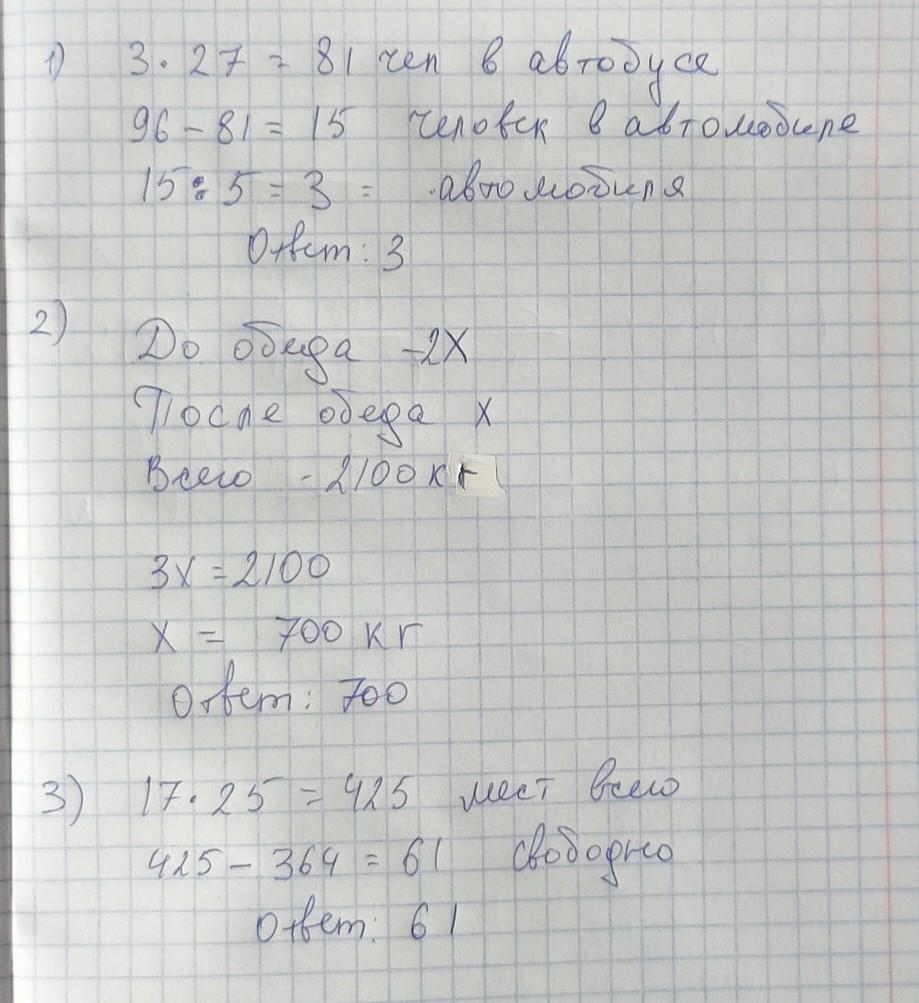 1) 3 · 27 = 81 чел в автобусе
96 - 81 = 15 человек в автомобиле
15 : 5 = 3 = автомобиля
Ответ: 3
2) До обеда - 2x
После обеда x
Всего - 2100 кг
3x = 2100
x = 700 кг
Ответ: 700
3) 17 · 25 = 425 мест всего
425 - 364 = 61 свободно
Ответ: 61